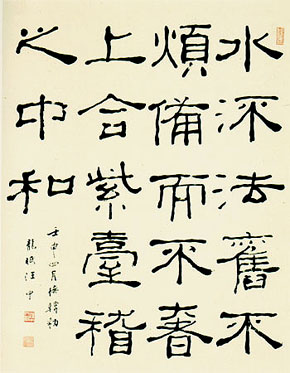 水流法舊不
煩備而不奢
上合紫臺稽
之中和
壬申四月橅韓勑
龍眠汪中